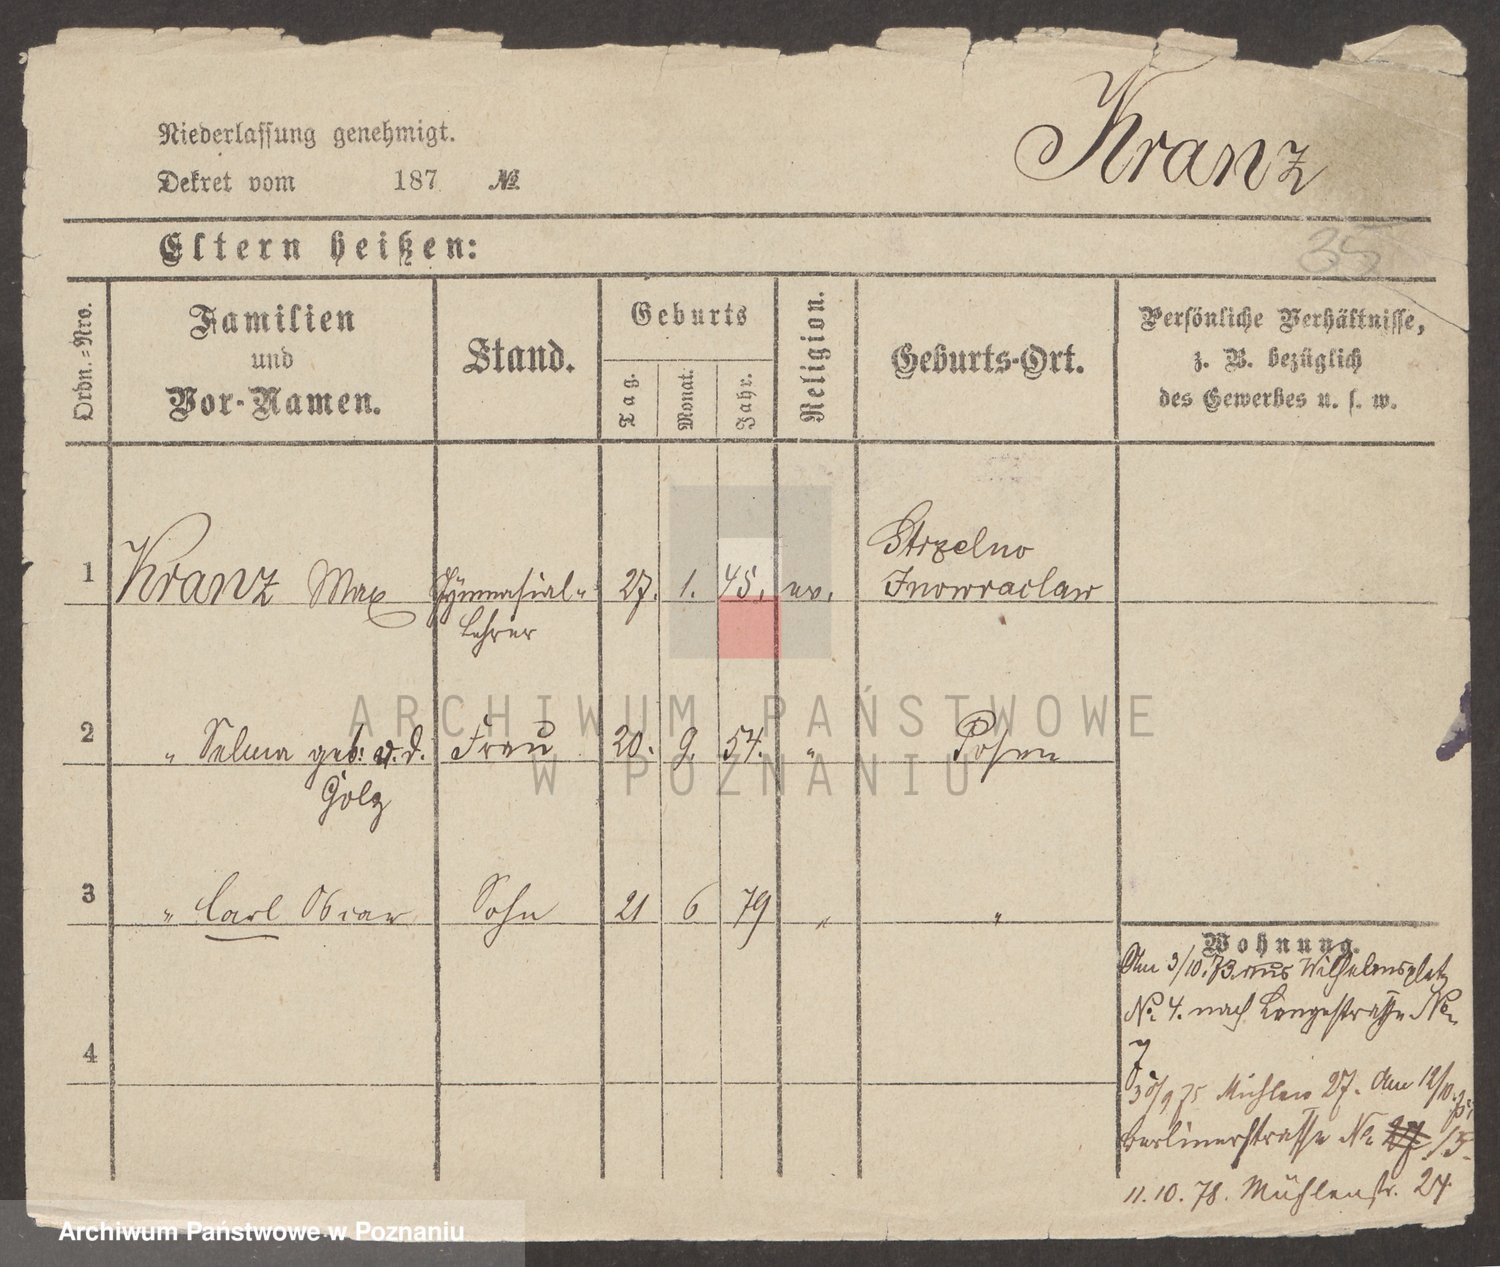 Niederlassung genehmigt.
Kranz
Dekret vom 187 №
35
Eltern heißen:
Ordn.=Nro.
Familien
und
Vor-Namen.
Stand.
Geburts
Tag.
Monat.
Jahr.
Religion.
Geburts-Ort.
Persönliche Verhältnisse,
z. B. bezüglich
des Gewerbes u. s. w.
Strzelno
1 Kranz Max Gymnasial- 27. 1. 45. ev. Inowraclaw
Lehrer
ARCHIWUM PAŃSTWOWE
2 " Selma geb: v. d. Frau 20. 9. 54. " Posen
W POZNANIU
Golz
3 " Carl Oscar Sohn 21 6 79 " "
Wohnung.
Am 3/10.73 aus Wilhelmsplatz
No. 4. nach Langestraße No.
7
30/9 75 Mühlen 27. Am 12/10.
Berlinerstrasse No. 27 15.
11.10.78. Mühlenstr. 24
4
Archiwum Państwowe w Poznaniu